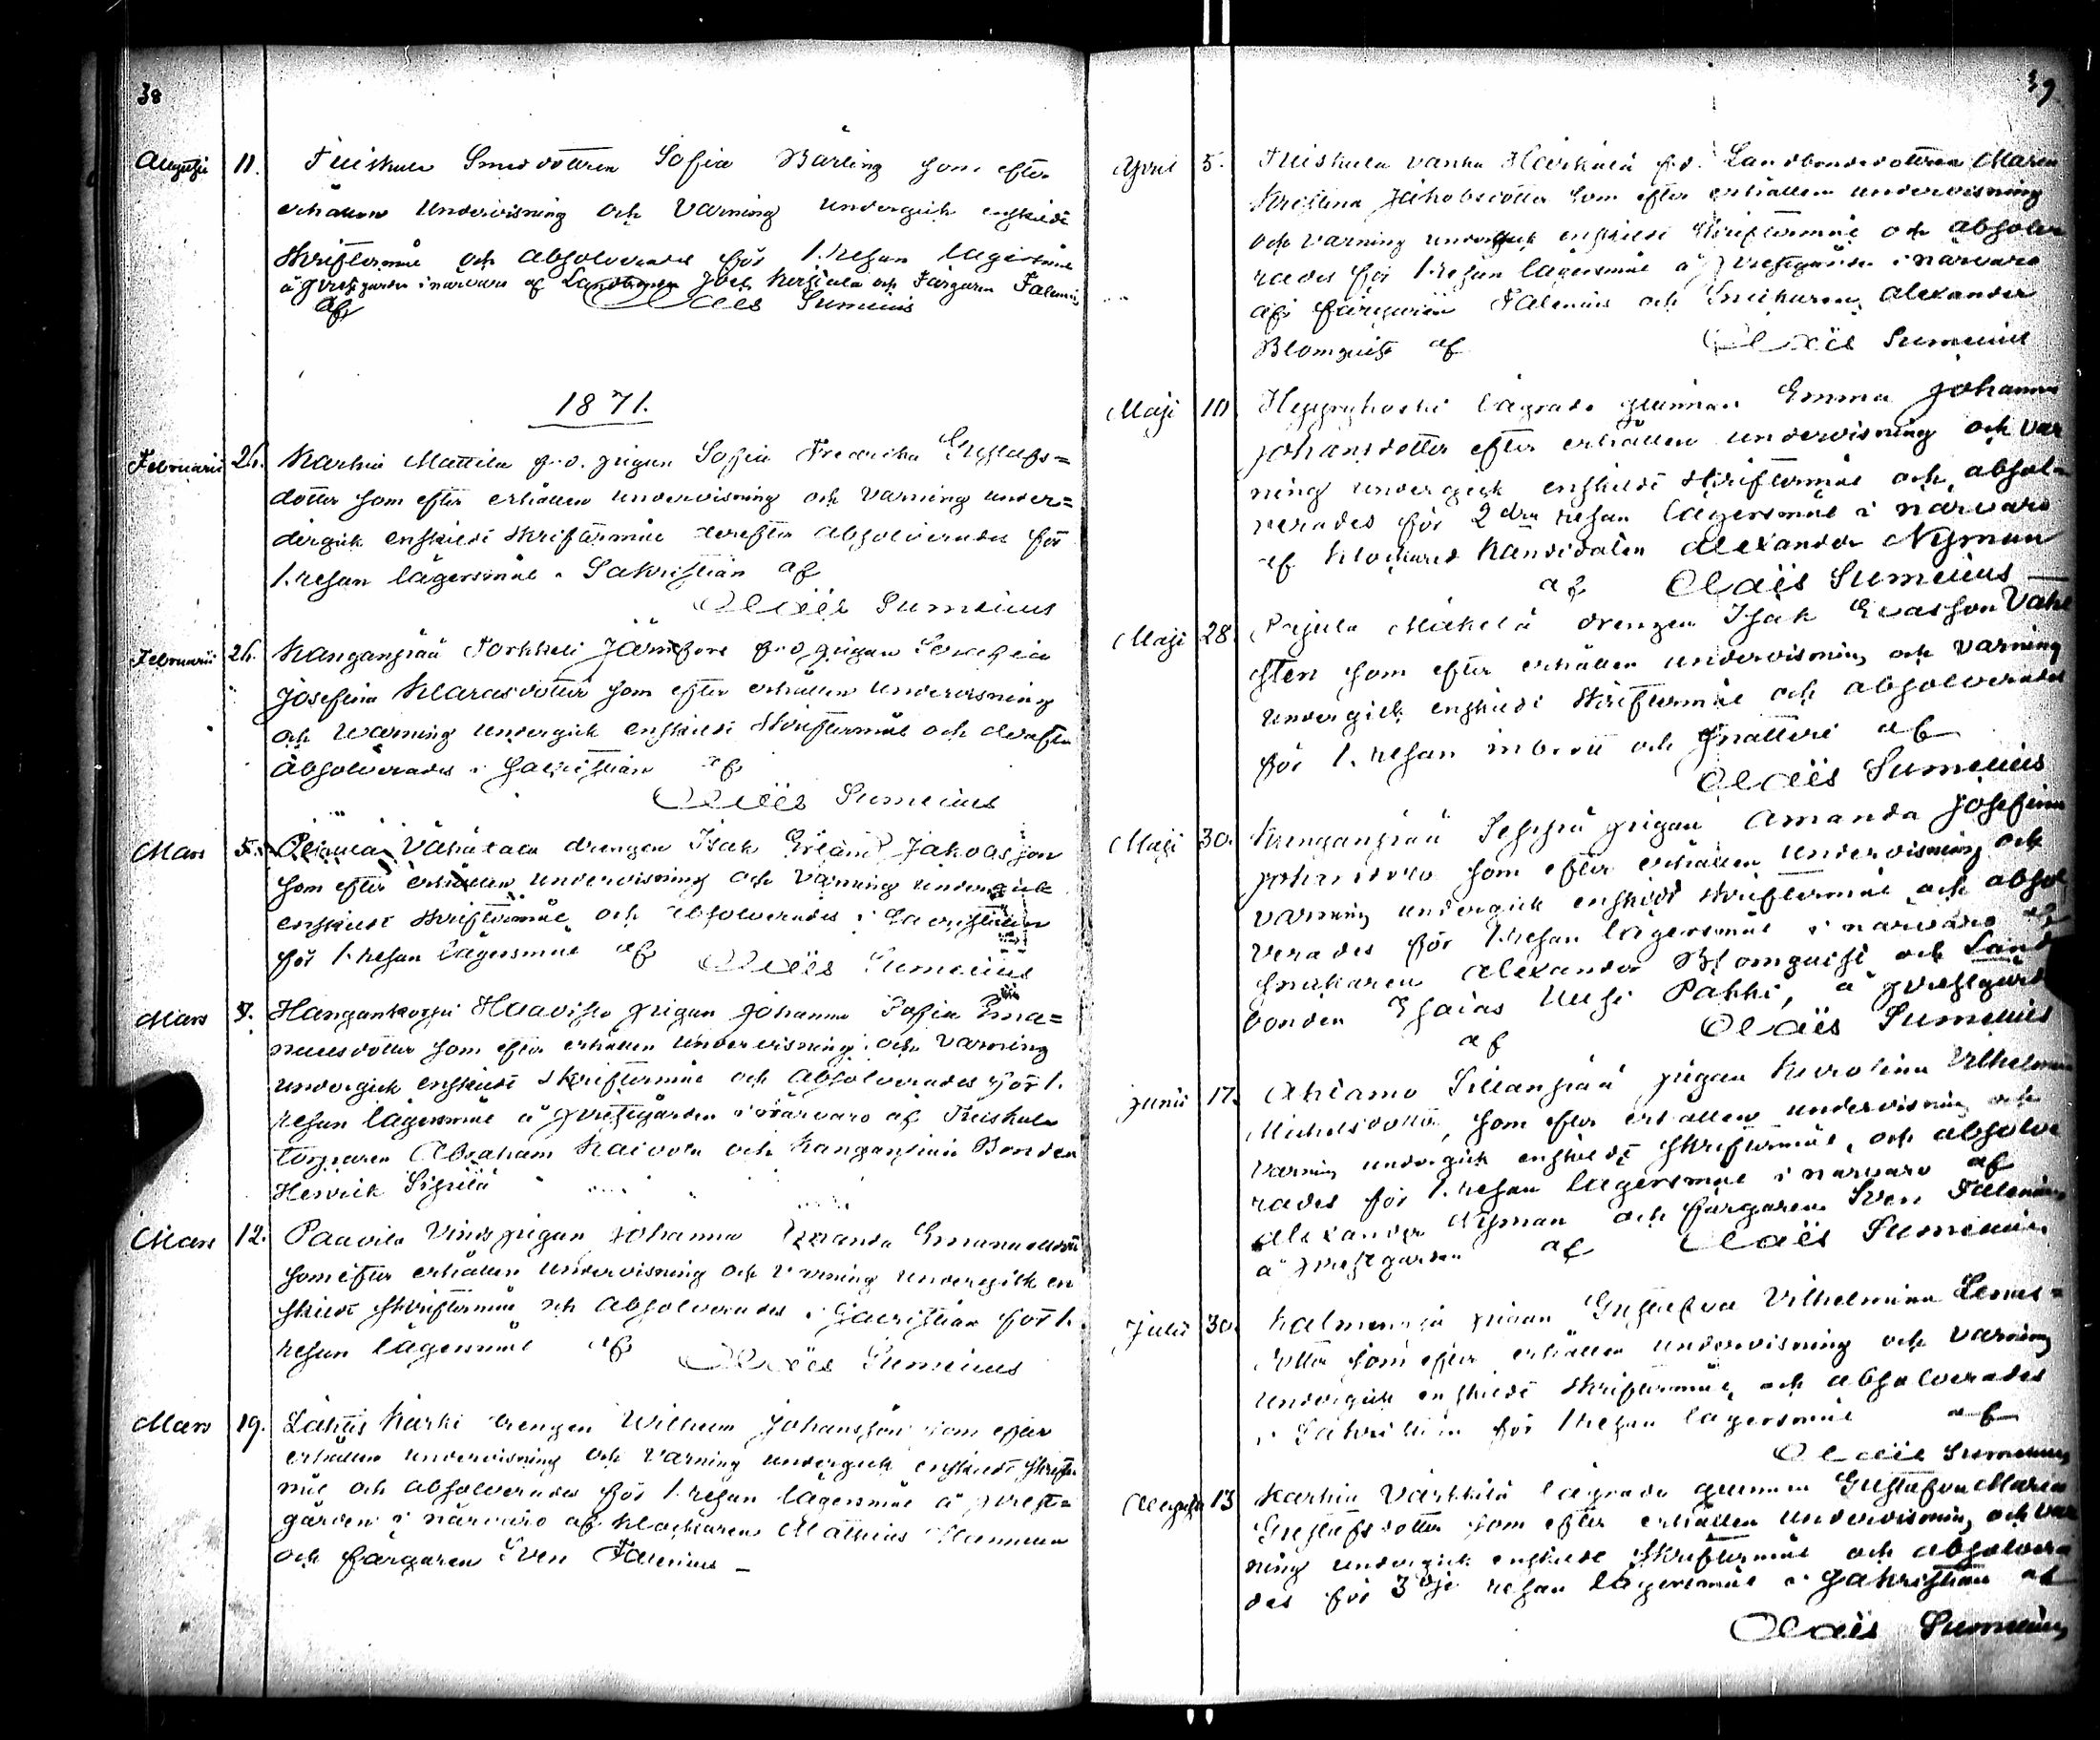 38
Augusti 11. Smedsdottren Sofia Bärling som efter
erhållen undervisning och varning undergick enskildt
skriftermål och absolverades för 1. resan lägersmål
å Prestgården i närvaro af Landbonden Joel och Färgaren Falenius
af Claës Sumelius
1871.
Februarii 26. Karhia Mattila f.d. pigan Sofia Fredrika Gustafs=
dotter som efter erhållen undervisning och varning under=
dergick enskildt skriftermål derefter absolverades för
1. resan lägersmål i Sakristian af
Claës Sumelius
Februarii 26. Kanganpää Torkkeli f.d. pigan
Josefina Klarasdotter som efter erhållen undervisning
och warning undergick enskildt skriftermål och derefter
absolverades i Sacristian af
Claës Sumelius
Mars 5. drengen Isak Erland Jakobsson
som efter erhållen undervisning och varning undergick
enskildt skriftermål och absolverades i Sacristian
för 1. resan lägersmål af Claës Sumelius
Mars 5. Hangankorpi Haavisto pigan Johanna Sofia Ema=
nuelsdotter som efter erhållen undervisning och varning
undergick enskildt skriftermål och absolverades för 1.
resan lägersmål å prestgården i närvaro af
torparen Abraham Kaivola och Kanganpää Bonden
Henrik Sipilä
Mars 12. Paavila Vinds pigan Johanna Amanda Emanuelsdotter
som efter erhållen undervisning och varning undergick en
skildt skriftermål och absolverades i Sacristian för 1.
resan lägersmål af Claës Sumelius
Mars 19. Lähtis Kärki drengen Wilhelm Johansson som efter
erhållen undervisning och varning undergick enskildt skrifter
mål och absolverades för 1. resan lägersmål å prest=
gården i närvaro af klockaren Mathias
och färgaren Sven Falenius –
39
April 5. Vanha Härkälä f.d. Landbondedottren Maria
Kristina Jakobsdotter som efter erhållen undervisning
och varning undergick enskildt skriftermål och absolve
rades för 1. resan lägersmål å Prestgården i närvaro
af färgaren Falenius och Snickaren Alexander
Blomquist af Claës Sumelius
Maji 10. lägrade qvinnan Emma Johanna
Johansdotter efter erhållen undervisning och var
ning undergick enskildt skriftermål och absol=
verades för 2dra resan lägersmål i närvaro
af klockare kandidaten Alexander Nyman
af Claës Sumelius
Maji 28. Pajula Mäkelä drengen Isak Evasson Vahl
sten som efter erhållen undervisning och varning
undergick enskildt skriftermål och absolverades
för 1. resan inbrott och snatteri af
Claës Sumelius
Maji 30. Kanganpää Seppä pigan Amanda Josefina
Johansdotter som efter erhållen undervisning och
varning undergick enskildt skriftermål och absol
verades för 1. resan lägersmål i närvaro af
snickaren Alexander Blomquist och Land
bonden Esaias Uusi Pakki, å prestgård
af Claës Sumelius
Junii 17. Ahlamo Sillanpää pigan Karolina Vilhelmina
Michelsdotter, som efter erhållen undervisning och
varning undergick enskildt skriftermål, och absolve
rades för 1. resan lägersmål i närvaro af
Alexander Nyman och färgaren Sven Falenius
å prestgården af Claës Sumelius
Julii 30. pigan Gustafva Vilhelmina
dotter som efter erhållen undervisning och varning
undergick enskildt skriftermål och absolverades
i Sakristian för 1 resan lägersmål af
Claës Sumelius
Augusti 13 Karhia Värkkilä lägrade qvinnan Gustafva Maria
Gustafsdotter som efter erhållen undervisning och var
ning undergick enskildt skriftermål och absolvera
des för 3dje resan lägersmål i Sakristian af
Claës Sumelius